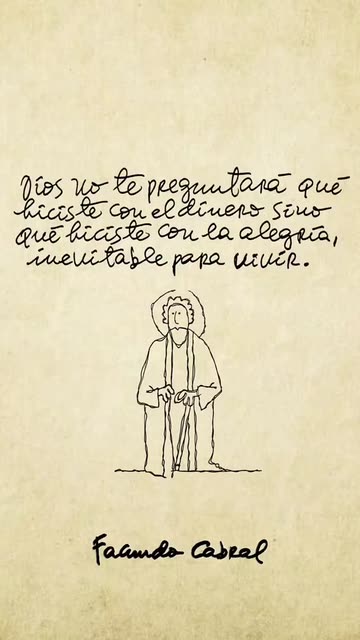 Dios no te preguntará qué
hiciste con el dinero sino
qué hiciste con la alegría,
inevitable para vivir.
Facundo Cabral